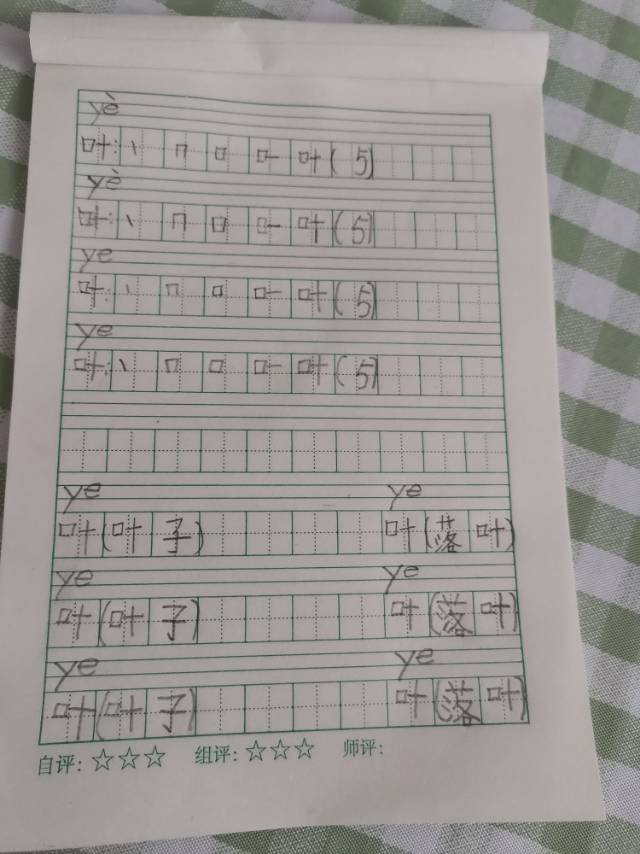 yè
叶:丶 ㄇ 口 叶 叶(5)
yè
叶:丶 ㄇ 口 叶 叶(5)
ye
叶:丶 ㄇ 口 叶 叶(5)
ye
叶:丶 ㄇ 口 叶 叶(5)
ye ye
叶(叶子) 叶(落叶)
ye ye
叶(叶子) 叶(落叶)
ye ye
叶(叶子) 叶(落叶)
自评:☆☆☆ 组评:☆☆☆ 师评: